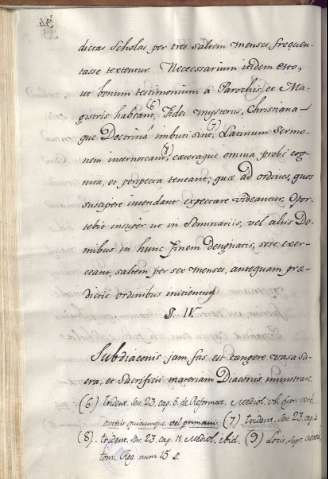 dictas Scholas per tres saltem menses frequen-
tasse teneantur. Necessarium itidem erit,
ut bonum testimonium à Parochis, et Ma-
gistris habeant (6) Fidei mysteriis, Christiana-
que Doctrinâ imbuti sint (7) Latinum Sermo-
nem (8) caeteraque omnia probè cog-
nita, et perspecta teneant, quae ad ordines, quos
suscipere intendunt expectare videantur. Opor-
tebit insuper ut in Seminariis, vel aliis Do-
mibus in hunc finem designatis, sese exer-
ceant, saltem per sex menses, antequam prae-
dictis ordinibus initientur
§. IV.
Subdiaconis jam fas est tangere vasa sa-
cra, et Sacrificii materiam Diaconis ministrare
(6) Trident. Sess. 23. cap. 5. de Reformat. Mediol.
quicumque vel primam. (7) Trident. Sess. 23. cap.
(8). Trident. Sess. 23. cap. 11. Mediol. ibid. (9)
num. 15